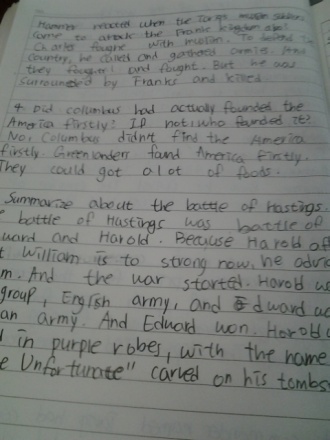 Hammer reacted when the large muslim soldiers
came to attack the Frank kingdom
Charles fought with muslim. To defend
country, he called and gathered armies. And
they fought and fought. But he was
surrounded by Franks and killed.
4. Did columbus had actually founded the
America firstly? If not, who founded it?
No, Columbus didn't find the America
firstly. Greenlanders found America firstly.
They could got a lot of foods.
Summarize about the battle of Hastings.
battle of Hastings was battle of
ward and Harold. Because Harold
t William is to strong now, he
m. And the war started. Harold
group, English army, and Edward
an army. And Edward won. Harold
d in purple robes, with the name
e Unfortunate" carved on his tombs